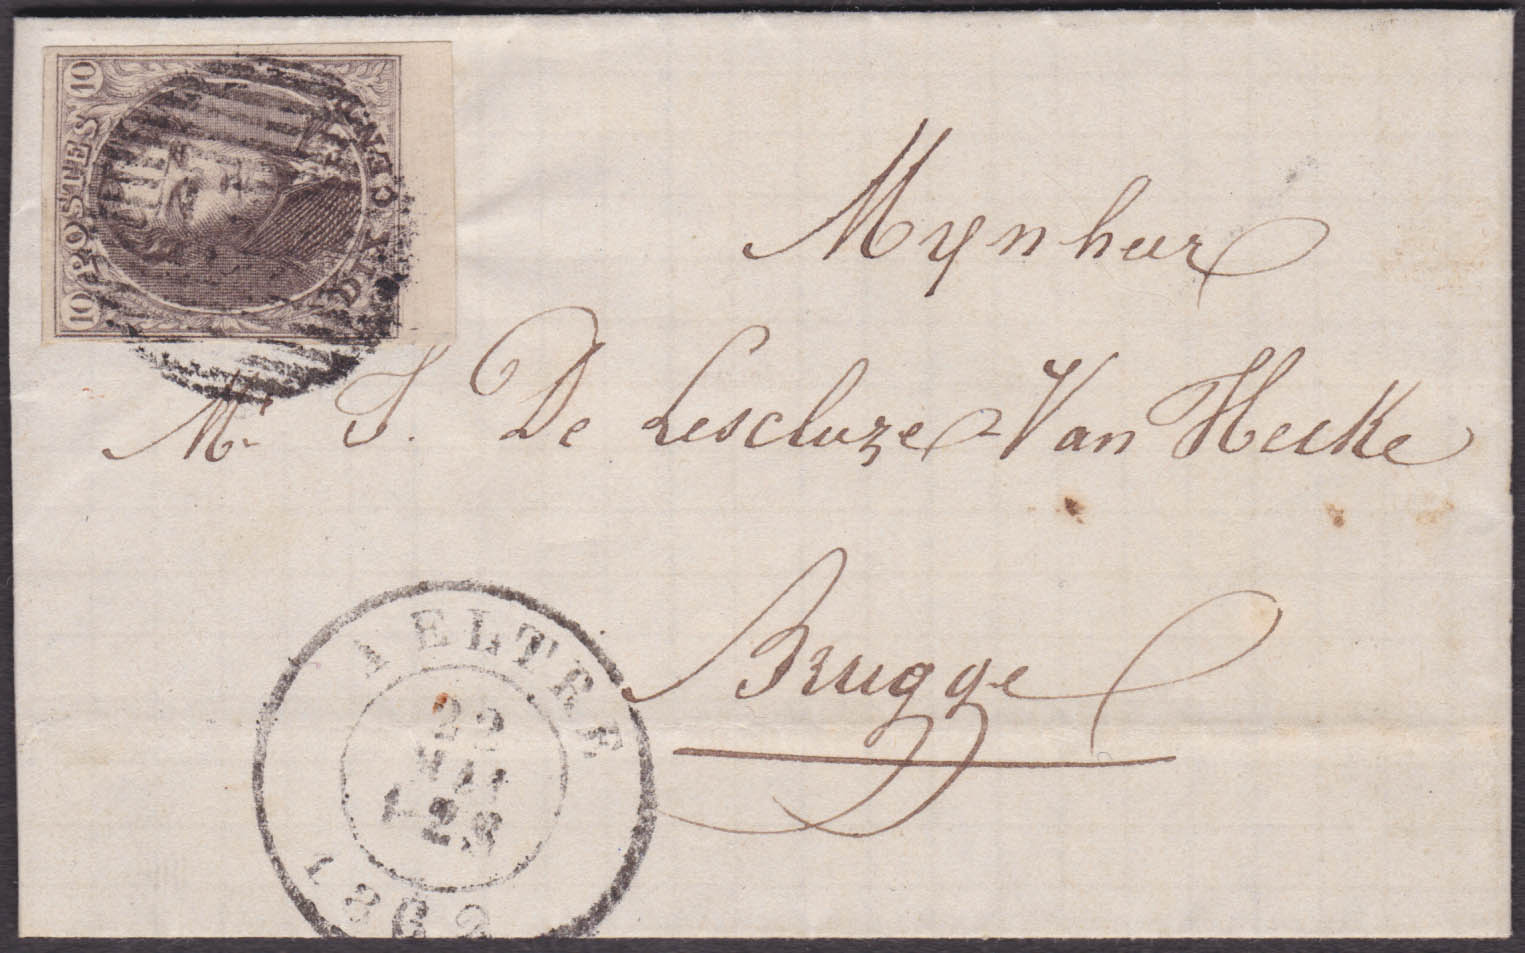 10 POSTES 10
DIX CENT
Mynheer
Mr J. De Lescluze Van Hecke
Brugge
AELTRE
22
MAI
1862